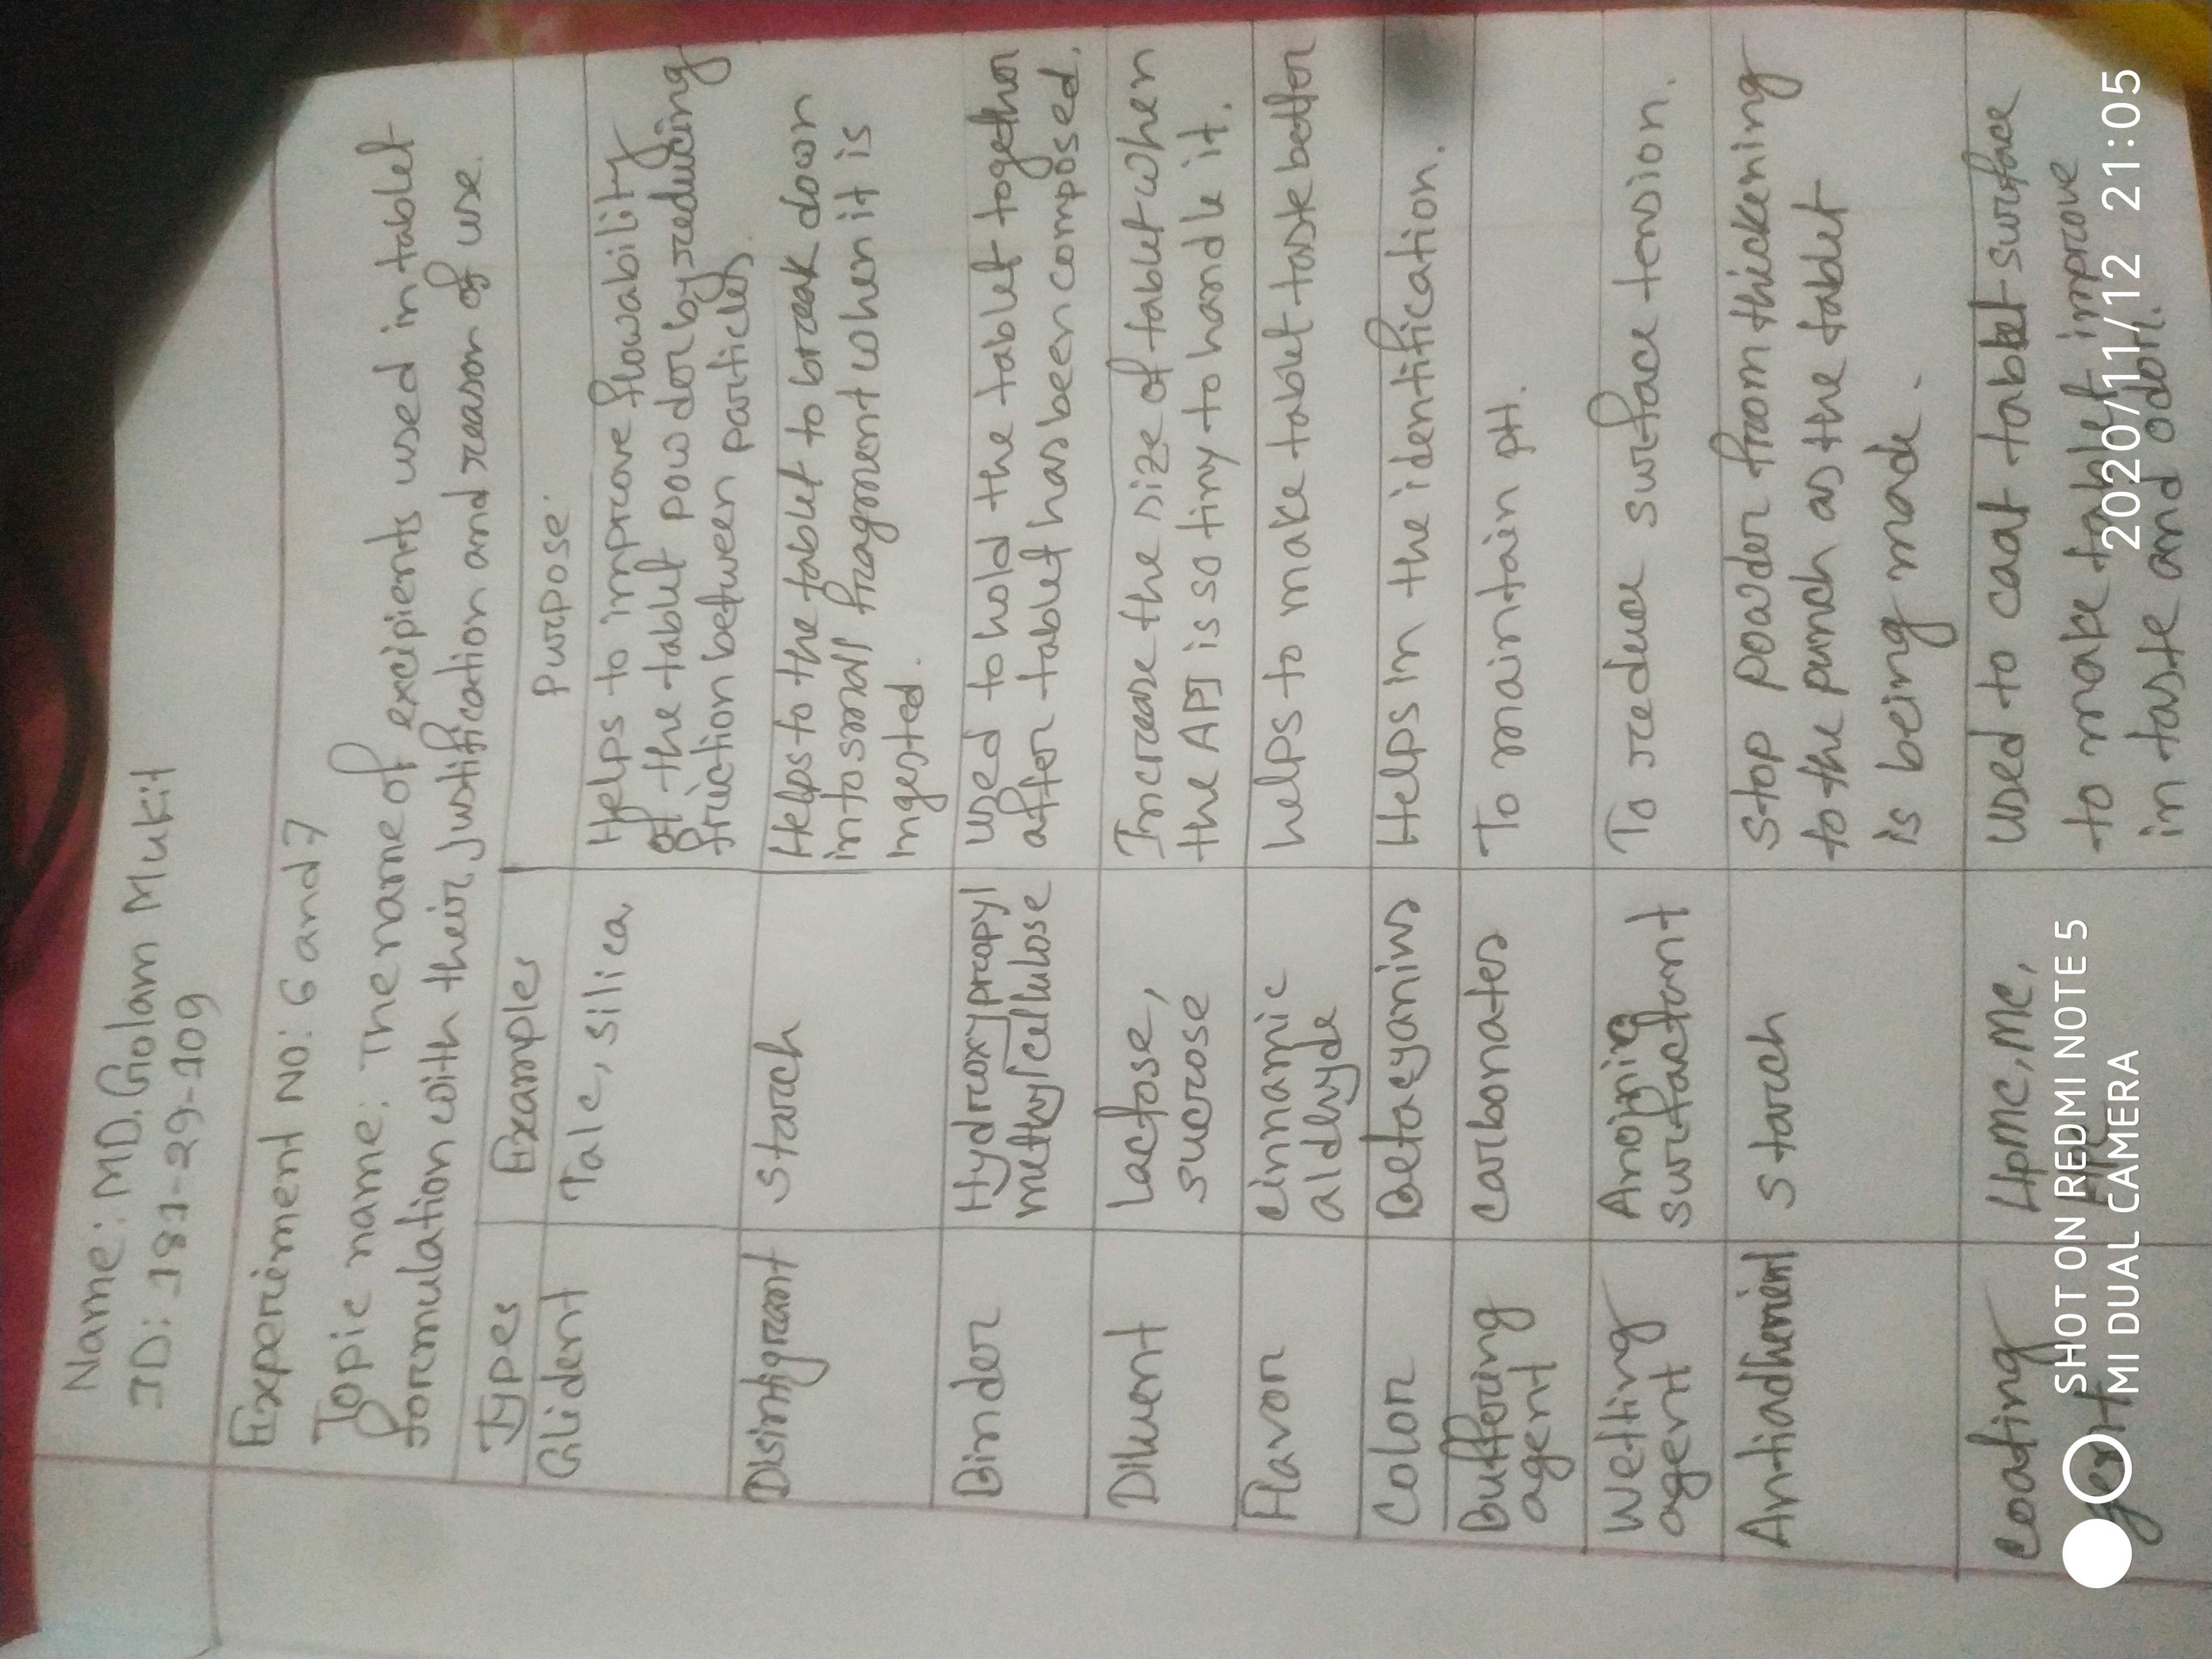 Name: MD. Golam Mukit
ID: 181-29-109
Experiment NO: 6 and 7
Topic name: The name of excipients used in tablet
formulation with their justification and reason of use.
Types Examples Purpose
Glident Talc, silica, Helps to improve flowability
of the tablet powder by reducing
friction between particles.
Disintigrant Starch Helps to the tablet to break down
into small fragment when it is
ingested.
Binder Hydroxypropyl used to hold the tablet together
methylcellulose after tablet has been composed.
Diluent Lactose, Increase the size of tablet when
sucrose the API is so tiny to handle it.
Flavor cinnamic helps to make tablet taste better
aldehyde
Color Betacyanins Helps in the identification.
Buffering carbonates To maintain pH.
agent
Wetting Anoinic To reduce surface tension.
agent surfactant
Antiadherent starch stop powder from thickening
to the punch as the tablet
is being made.
coating HpMC, MC, used to coat tablet surface
gent HPC to make tablet improve
in taste and odor.
SHOT ON REDMI NOTE 5
MI DUAL CAMERA
2020/11/12 21:05